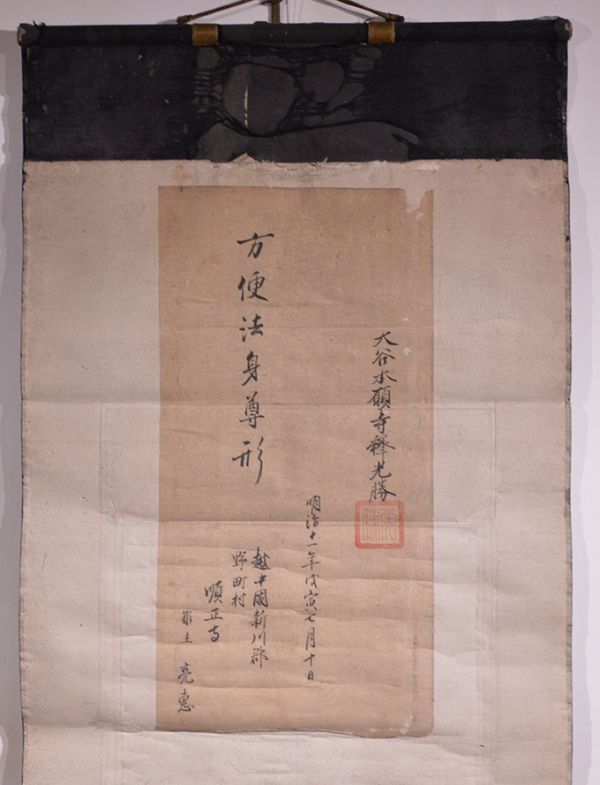 大谷本願寺釋光勝
明治十一年戊寅七月十日
方便法身尊形
越中國新川郡
野町村
順正寺
願主 亮惠